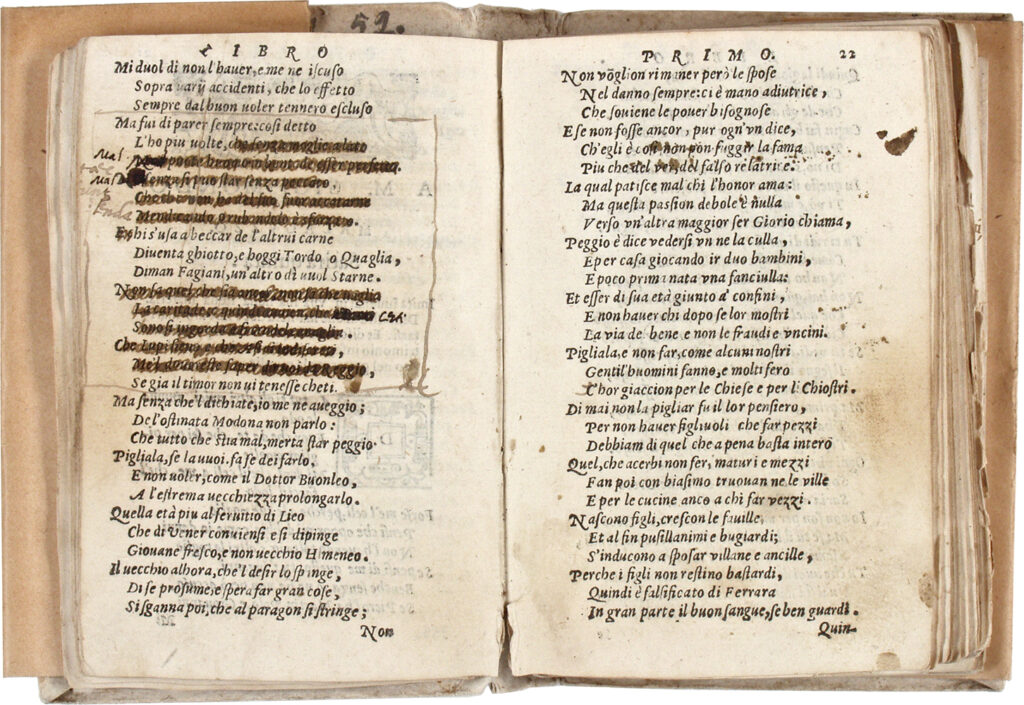 52.
LIBRO
Mi duol di non l'hauer, e me ne iscuso
Sopra varij accidenti, che lo effetto
Sempre dal buon uoler tennero escluso
Ma fui di parer sempre: cosi detto
L'ho piu uolte, che senza moglie a lato
senza si puo star senza peccato
Ma
Ma
Enda
E chi s'usa a beccar de l'altrui carne
Diuenta ghiotto, e hoggi Tordo o Quaglia,
Diman Fagiani, un'altro dì uuol Starne.
Non sa quel, che sia amor, non sa che uaglia
La caritade: e quindi auuien, che
Sono si ingorda
Che Lupi siete, e che
Me'l douereste saper dir uoi da Reggio,
Se gia il timor non ui tenesse cheti.
Ma senza che'l dichiate, io me ne aueggio;
De l'ostinata Modona non parlo:
Che tutto che stia mal, merta star peggio.
Pigliala, se la uuoi. fa se dei farlo,
E non uoler, come il Dottor Buonleo,
A l'estrema uecchiezza prolongarlo.
Quella età piu al seruitio di Lieo
Che di Vener conuiensi e si dipinge
Giouane fresco, e non uecchio Himeneo.
Il uecchio alhora, che'l desir lo spinge,
Di se prosume, e spera far gran cose,
Si sganna poi, che al paragon si stringe;
Non
PRIMO. 22
Non voglion rimaner però le spose
Nel danno sempre: ci è mano adiutrice,
Che souiene le pouer bisognose
E se non fosse ancor, pur ogn'vn dice,
Ch'egli è cosi. non pon fuggir la fama
Piu che del ver, del falso relatrice.
La qual patisce mal chi l'honor ama:
Ma questa passion debole è nulla
Verso vn'altra maggior ser Giorio chiama,
Peggio è dice vedersi vn ne la culla,
E per casa giocando ir duo bambini,
E poco prima nata vna fanciulla:
Et esser di sua età giunto a' confini,
E non hauer chi dopo se lor mostri
La via del bene e non le fraudi e vncini.
Pigliala, e non far, come alcuni nostri
Gentil'huomini fanno, e molti fero
Chor giaccion per le Chiese e per li Chiostri.
Di mai non la pigliar fu il lor pensiero,
Per non hauer figliuoli che far pezzi
Debbiam di quel che a pena basta intero
Quel, che acerbi non fer, maturi e mezzi
Fan poi con biasimo truouan ne le ville
E per le cucine anco a chi far vezzi.
Nascono figli, crescon le fauille,
Et al fin pusillanimi e bugiardi;
S'inducono a sposar villane e ancille,
Perche i figli non restino bastardi,
Quindi è falsificato di Ferrara
In gran parte il buon sangue, se ben guardi.
Quin-